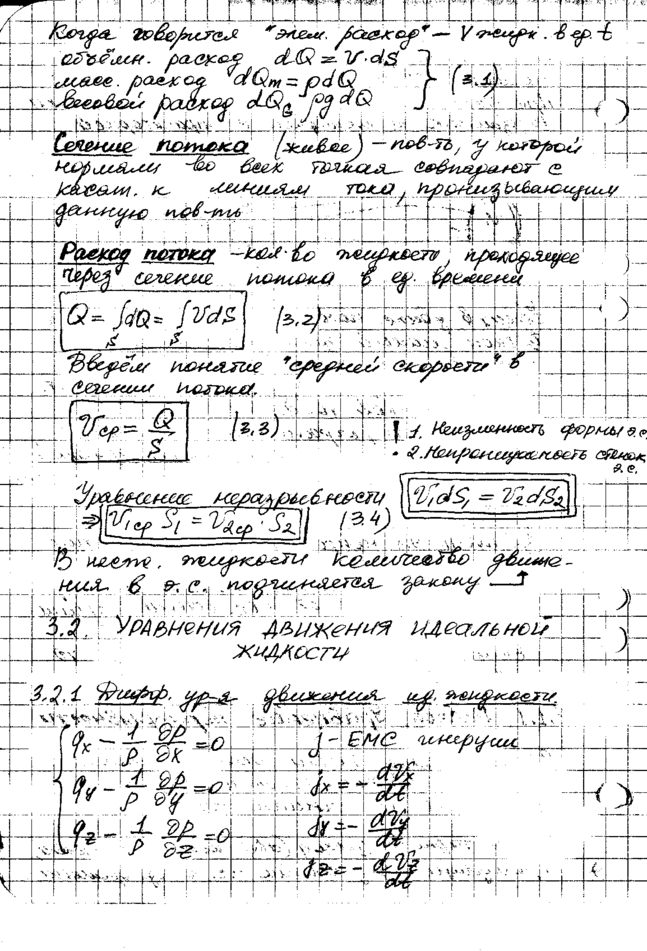 Когда говорится "элем. расход" – V жидк. в ед. t
объёмн. расход dQ = V·dS
масс. расход dQm = ρdQ } (3.1)
весовой расход dQG ρgdQ
Сечение потока (живое) – пов-ть, у которой
нормали во всех точках совпадают с
касат. к линиям тока, пронизывающим
данную пов-ть
Расход потока – кол-во жидкости, проходящее
через сечение потока в ед. времени
Q = ∫S dQ = ∫S VdS (3.2)
Введём понятие "средней скорости" в
сечении потока.
Vср = Q/S (3.3)
! 1. Неизменность формы э.с.
• 2. Непроницаемость стенок
э.с.
Уравнение неразрывности V1dS1 = V2dS2
⇒ V1ср S1 = V2ср · S2 (3.4)
В несж. жидкости количество движе-
ния в э.с. подчиняется закону
3.2. УРАВНЕНИЯ ДВИЖЕНИЯ ИДЕАЛЬНОЙ
ЖИДКОСТИ
3.2.1 Дифф. ур-я движения ид. жидкости.
qx – 1/ρ ∂p/∂x = 0 j – ЕМС инерции
qy – 1/ρ ∂p/∂y = 0 jx = – dVx/dt
qz – 1/ρ ∂p/∂z = 0 jy = – dVy/dt
jz = – dVz/dt